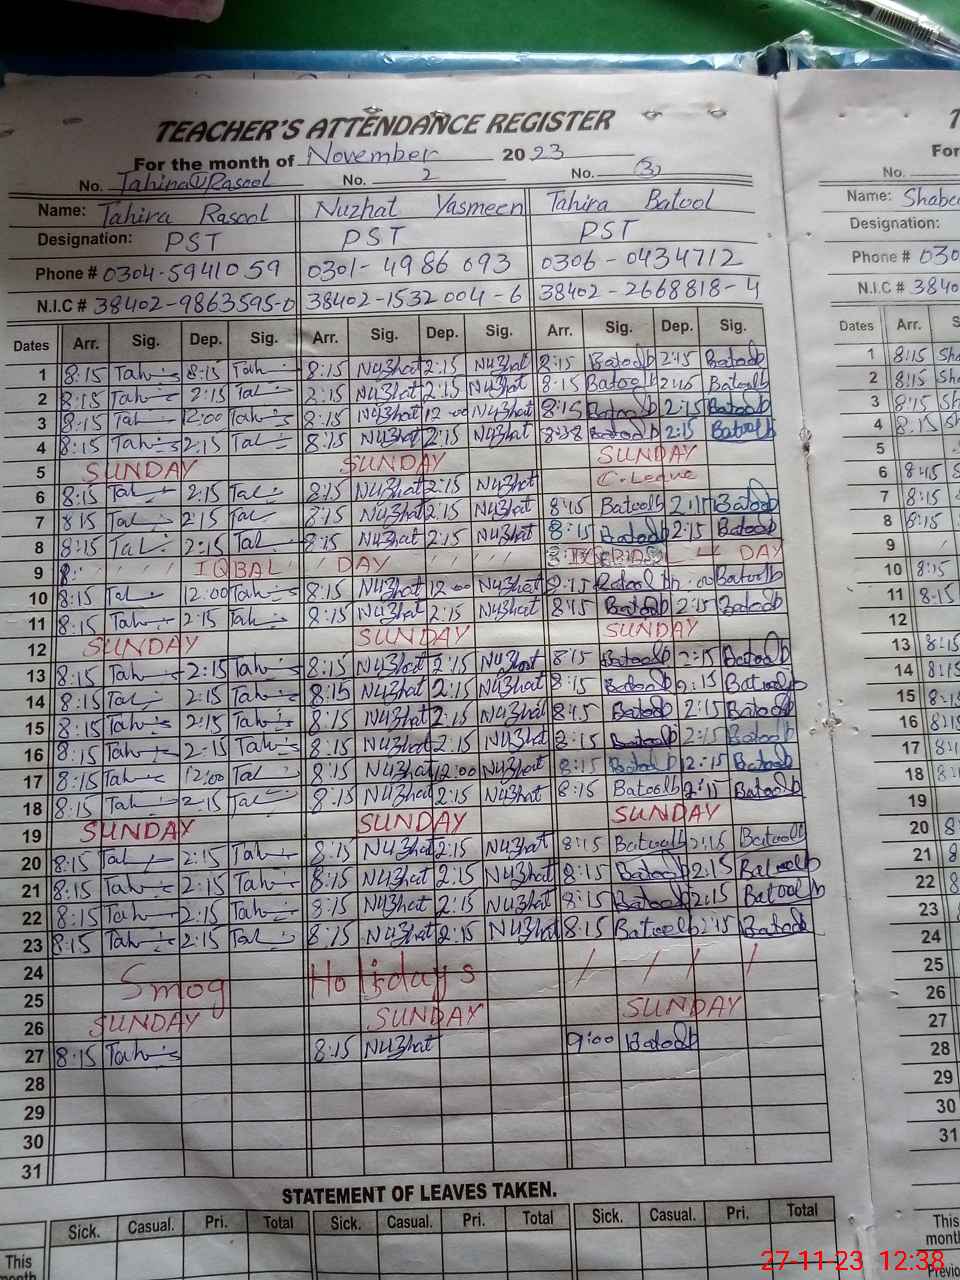 TEACHER'S ATTENDANCE REGISTER
For the month of November 2023
No. Tahira Rasool No. 2 No. (3)
Name: Tahira Rasool Nuzhat Yasmeen Tahira Batool
Designation: PST PST PST
Phone # 0304-5941059 0301-4986093 0306-0434712
N.I.C # 38402-9863595-0 38402-1532004-6 38402-2668818-4
Dates Arr. Sig. Dep. Sig. Arr. Sig. Dep. Sig. Arr. Sig. Dep. Sig.
1 8:15 Tah 8:15 Tah 8:15 Nu3hat 2:15 Nu3hat 8:15 Batoolb 2:15 Batoolb
2 8:15 Tah 2:15 Tal 2:15 Nu3hat 2:15 Nu3hat 8:15 Batoolb 2:15 Batoolb
3 8:15 Tah 12:00 Tah 8:15 Nu3hat 12:00 Nu3hat 8:15 Batoolb 2:15 Batoolb
4 8:15 Tah 2:15 Tal 8:15 Nu3hat 2:15 Nu3hat Batoolb 2:15 Batoolb
5 SUNDAY SUNDAY SUNDAY
6 8:15 Tal 2:15 Tal 8:15 Nu3hat 2:15 Nu3hat C.Leave
7 8:15 Tal 2:15 Tal 8:15 Nu3hat 2:15 Nu3hat 8:15 Batoolb 2:15 Batoolb
8 8:15 Tal 2:15 Tal 8:15 Nu3hat 2:15 Nu3hat 8:15 Batoolb 2:15 Batoolb
9 8: IQBAL DAY DAY
10 8:15 Tal 12:00 Tah 8:15 Nu3hat 12:00 Nu3hat 8:15 Batoolb :00 Batoolb
11 8:15 Tah 2:15 Tah 8:15 Nu3hat 2:15 Nu3hat 8:15 Batoolb 2:15 Batoolb
12 SUNDAY SUNDAY SUNDAY
13 8:15 Tah 2:15 Tah 8:15 Nu3hat 2:15 Nu3hat 8:15 Batoolb 2:15 Batoolb
14 8:15 Tal 2:15 Tah 8:15 Nu3hat 2:15 Nu3hat 8:15 Batoolb 2:15 Batoolb
15 8:15 Tah 2:15 Tah 8:15 Nu3hat 2:15 Nu3hat 8:15 Batoolb 2:15 Batoolb
16 8:15 Tah 2:15 Tah 8:15 Nu3hat 2:15 Nu3hat 8:15 Batoolb 2:15 Batoolb
17 8:15 Tah 12:00 Tal 8:15 Nu3hat 12:00 Nu3hat 8:15 Batoolb 2:15 Batoolb
18 8:15 Tah 2:15 Tal 8:15 Nu3hat 2:15 Nu3hat 8:15 Batoolb 2:15 Batoolb
19 SUNDAY SUNDAY SUNDAY
20 8:15 Tal 2:15 Tah 8:15 Nu3hat 2:15 Nu3hat 8:15 Batoolb 2:15 Batoolb
21 8:15 Tah 2:15 Tah 8:15 Nu3hat 2:15 Nu3hat 8:15 Batoolb 2:15 Batoolb
22 8:15 Tah 2:15 Tah 8:15 Nu3hat 2:15 Nu3hat 8:15 Batoolb 2:15 Batoolb
23 8:15 Tah 2:15 Tal 8:15 Nu3hat 2:15 Nu3hat 8:15 Batoolb 2:15 Batoolb
24 Smog Holidays / / / /
25
26 SUNDAY SUNDAY SUNDAY
27 8:15 Tah 8:15 Nu3hat 9:00 Batoolb
28
29
30
31
STATEMENT OF LEAVES TAKEN.
Sick. Casual. Pri. Total Sick. Casual. Pri. Total Sick. Casual. Pri. Total
This month
For
No.
Name: Shabe
Designation:
Phone # 030
N.I.C # 3840
Dates Arr. S
1 8:15 Sha
2 8:15 Sha
3 8:15 Sh
4 8:15 Sh
5
6 8:45 S
7 8:15
8 8:15
9
10 8:15
11 8:15
12
13 8:15
14 8:15
15
16 8:15
17
18
19
20 8
21 8
22 8
23
24
25
26
27
28
29
30
31
This month
Previo
27-11-23 12:38